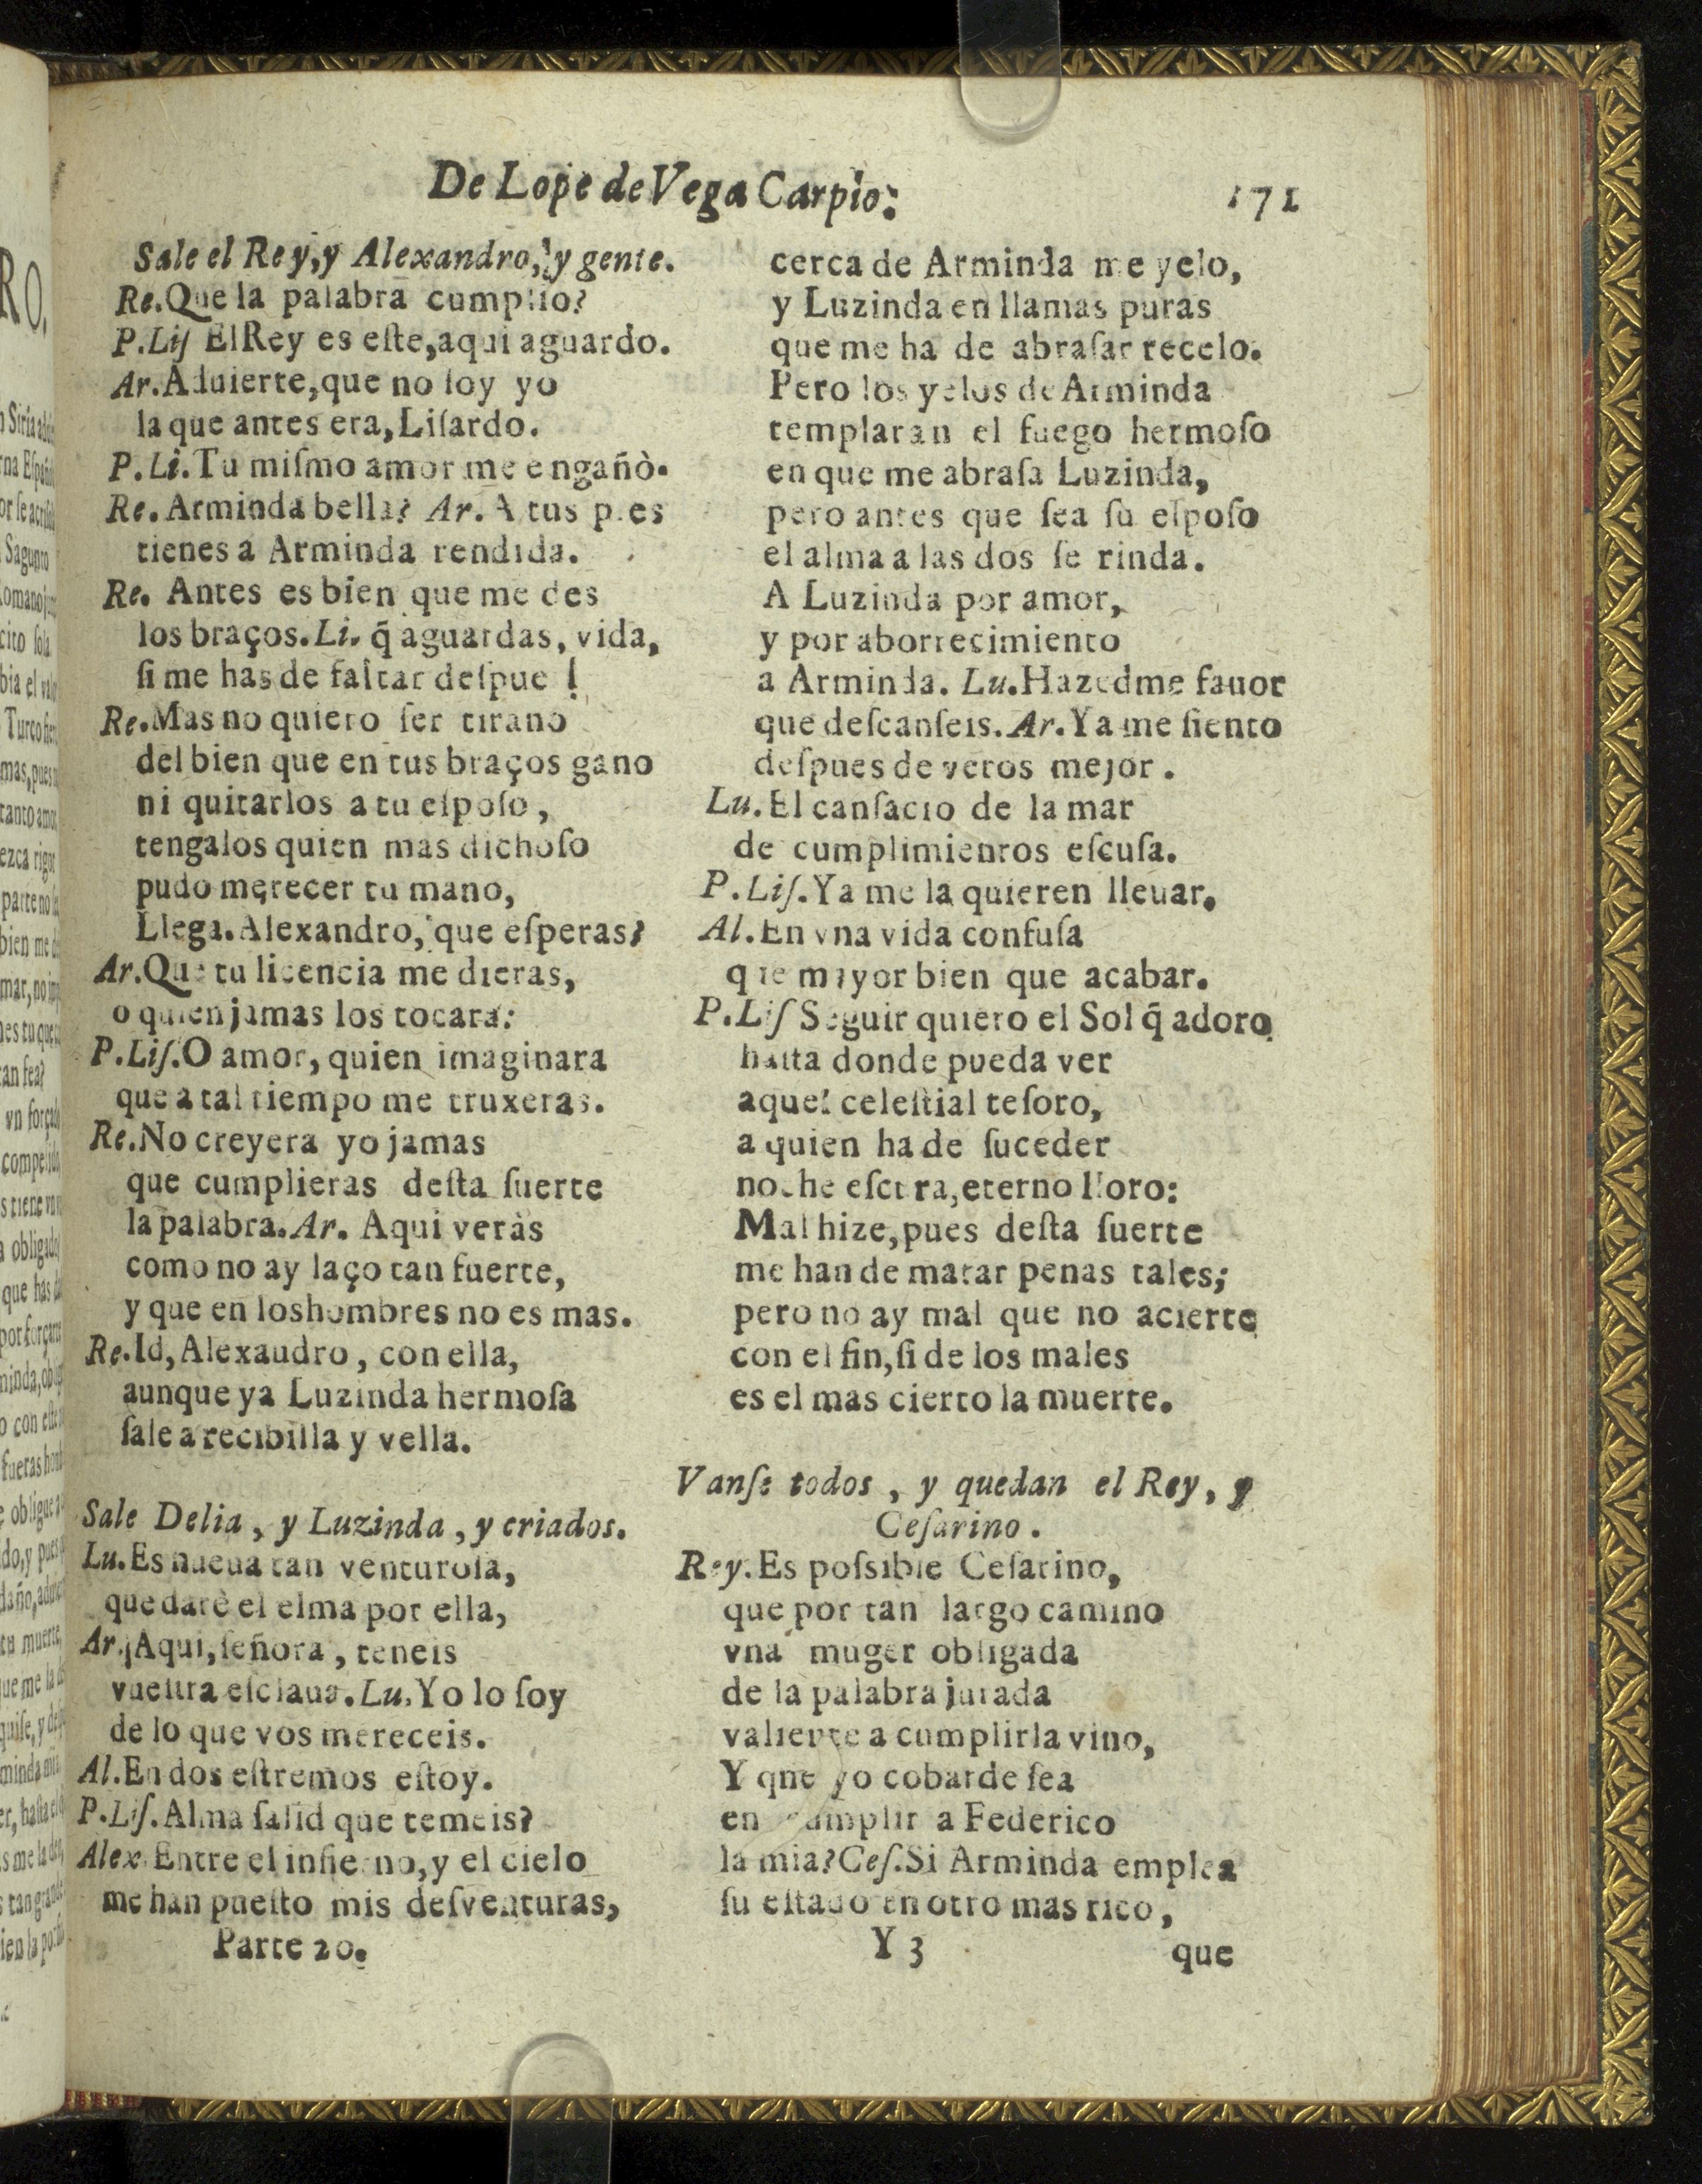 De Lope de Vega Carpio: 171
Sale el Rey, y Alexandro, y gente.
Re. Que la palabra cumplio?
P.Liſ El Rey es eſte, aqui aguardo.
Ar. Aduierte, que no ſoy yo
la que antes era, Liſardo.
P.Li. Tu miſmo amor me engañò.
Re. Arminda bella? Ar. A tus pies
tienes a Arminda rendida.
Re. Antes es bien que me des
los braços. Li. q̃ aguardas, vida,
ſi me has de faltar deſpue
Re. Mas no quiero ſer tirano
del bien que en tus braços gano
ni quitarlos a tu eſpoſo,
tengalos quien mas dichoſo
pudo merecer tu mano,
Llega. Alexandro, que eſperas?
Ar. Que tu licencia me dieras,
o quien jamas los tocara:
P.Liſ. O amor, quien imaginara
que a tal tiempo me truxeras.
Re. No creyera yo jamas
que cumplieras deſta ſuerte
la palabra. Ar. Aqui veràs
como no ay laço tan fuerte,
y que en loshombres no es mas.
Re. Id, Alexaudro, con ella,
aunque ya Luzinda hermoſa
ſale a recibilla y vella.
Sale Delia, y Luzinda, y criados.
Lu. Es nueua tan venturoſa,
que darè el elma por ella,
Ar. Aqui, ſeñora, teneis
vueſtra eſclaua. Lu. Yo lo ſoy
de lo que vos mereceis.
Al. En dos eſtremos eſtoy.
P.Liſ. Alma ſalid que temeis?
Alex. Entre el infierno, y el cielo
me han pueſto mis deſventuras,
Parte 20.
cerca de Arminda me yelo,
y Luzinda en llamas puras
que me ha de abraſar recelo.
Pero los yelos de Arminda
templaran el fuego hermoſo
en que me abraſa Luzinda,
pero antes que ſea ſu eſpoſo
el alma a las dos ſe rinda.
A Luzinda por amor,
y por aborrecimiento
a Arminda. Lu. Hazedme fauor
que deſcanſeis. Ar. Ya me ſiento
deſpues de veros mejor.
Lu. El canſacio de la mar
de cumplimientos eſcuſa.
P.Liſ. Ya me la quieren lleuar.
Al. En vna vida confuſa
que mayor bien que acabar.
P.Liſ Seguir quiero el Sol q̃ adoro
haſta donde pueda ver
aquel celeſtial teſoro,
a quien ha de ſuceder
noche eſcura, eterno lloro:
Mal hize, pues deſta ſuerte
me han de matar penas tales;
pero no ay mal que no acierte
con el fin, ſi de los males
es el mas cierto la muerte.
Vanſe todos, y quedan el Rey, y
Ceſarino.
Rey. Es poſsible Ceſarino,
que por tan largo camino
vna muger obligada
de la palabra jurada
valiente a cumplirla vino,
Y qne yo cobarde ſea
en cumplir a Federico
la mia? Ceſ. Si Arminda emplea
ſu eſtado en otro mas rico,
Y 3 que